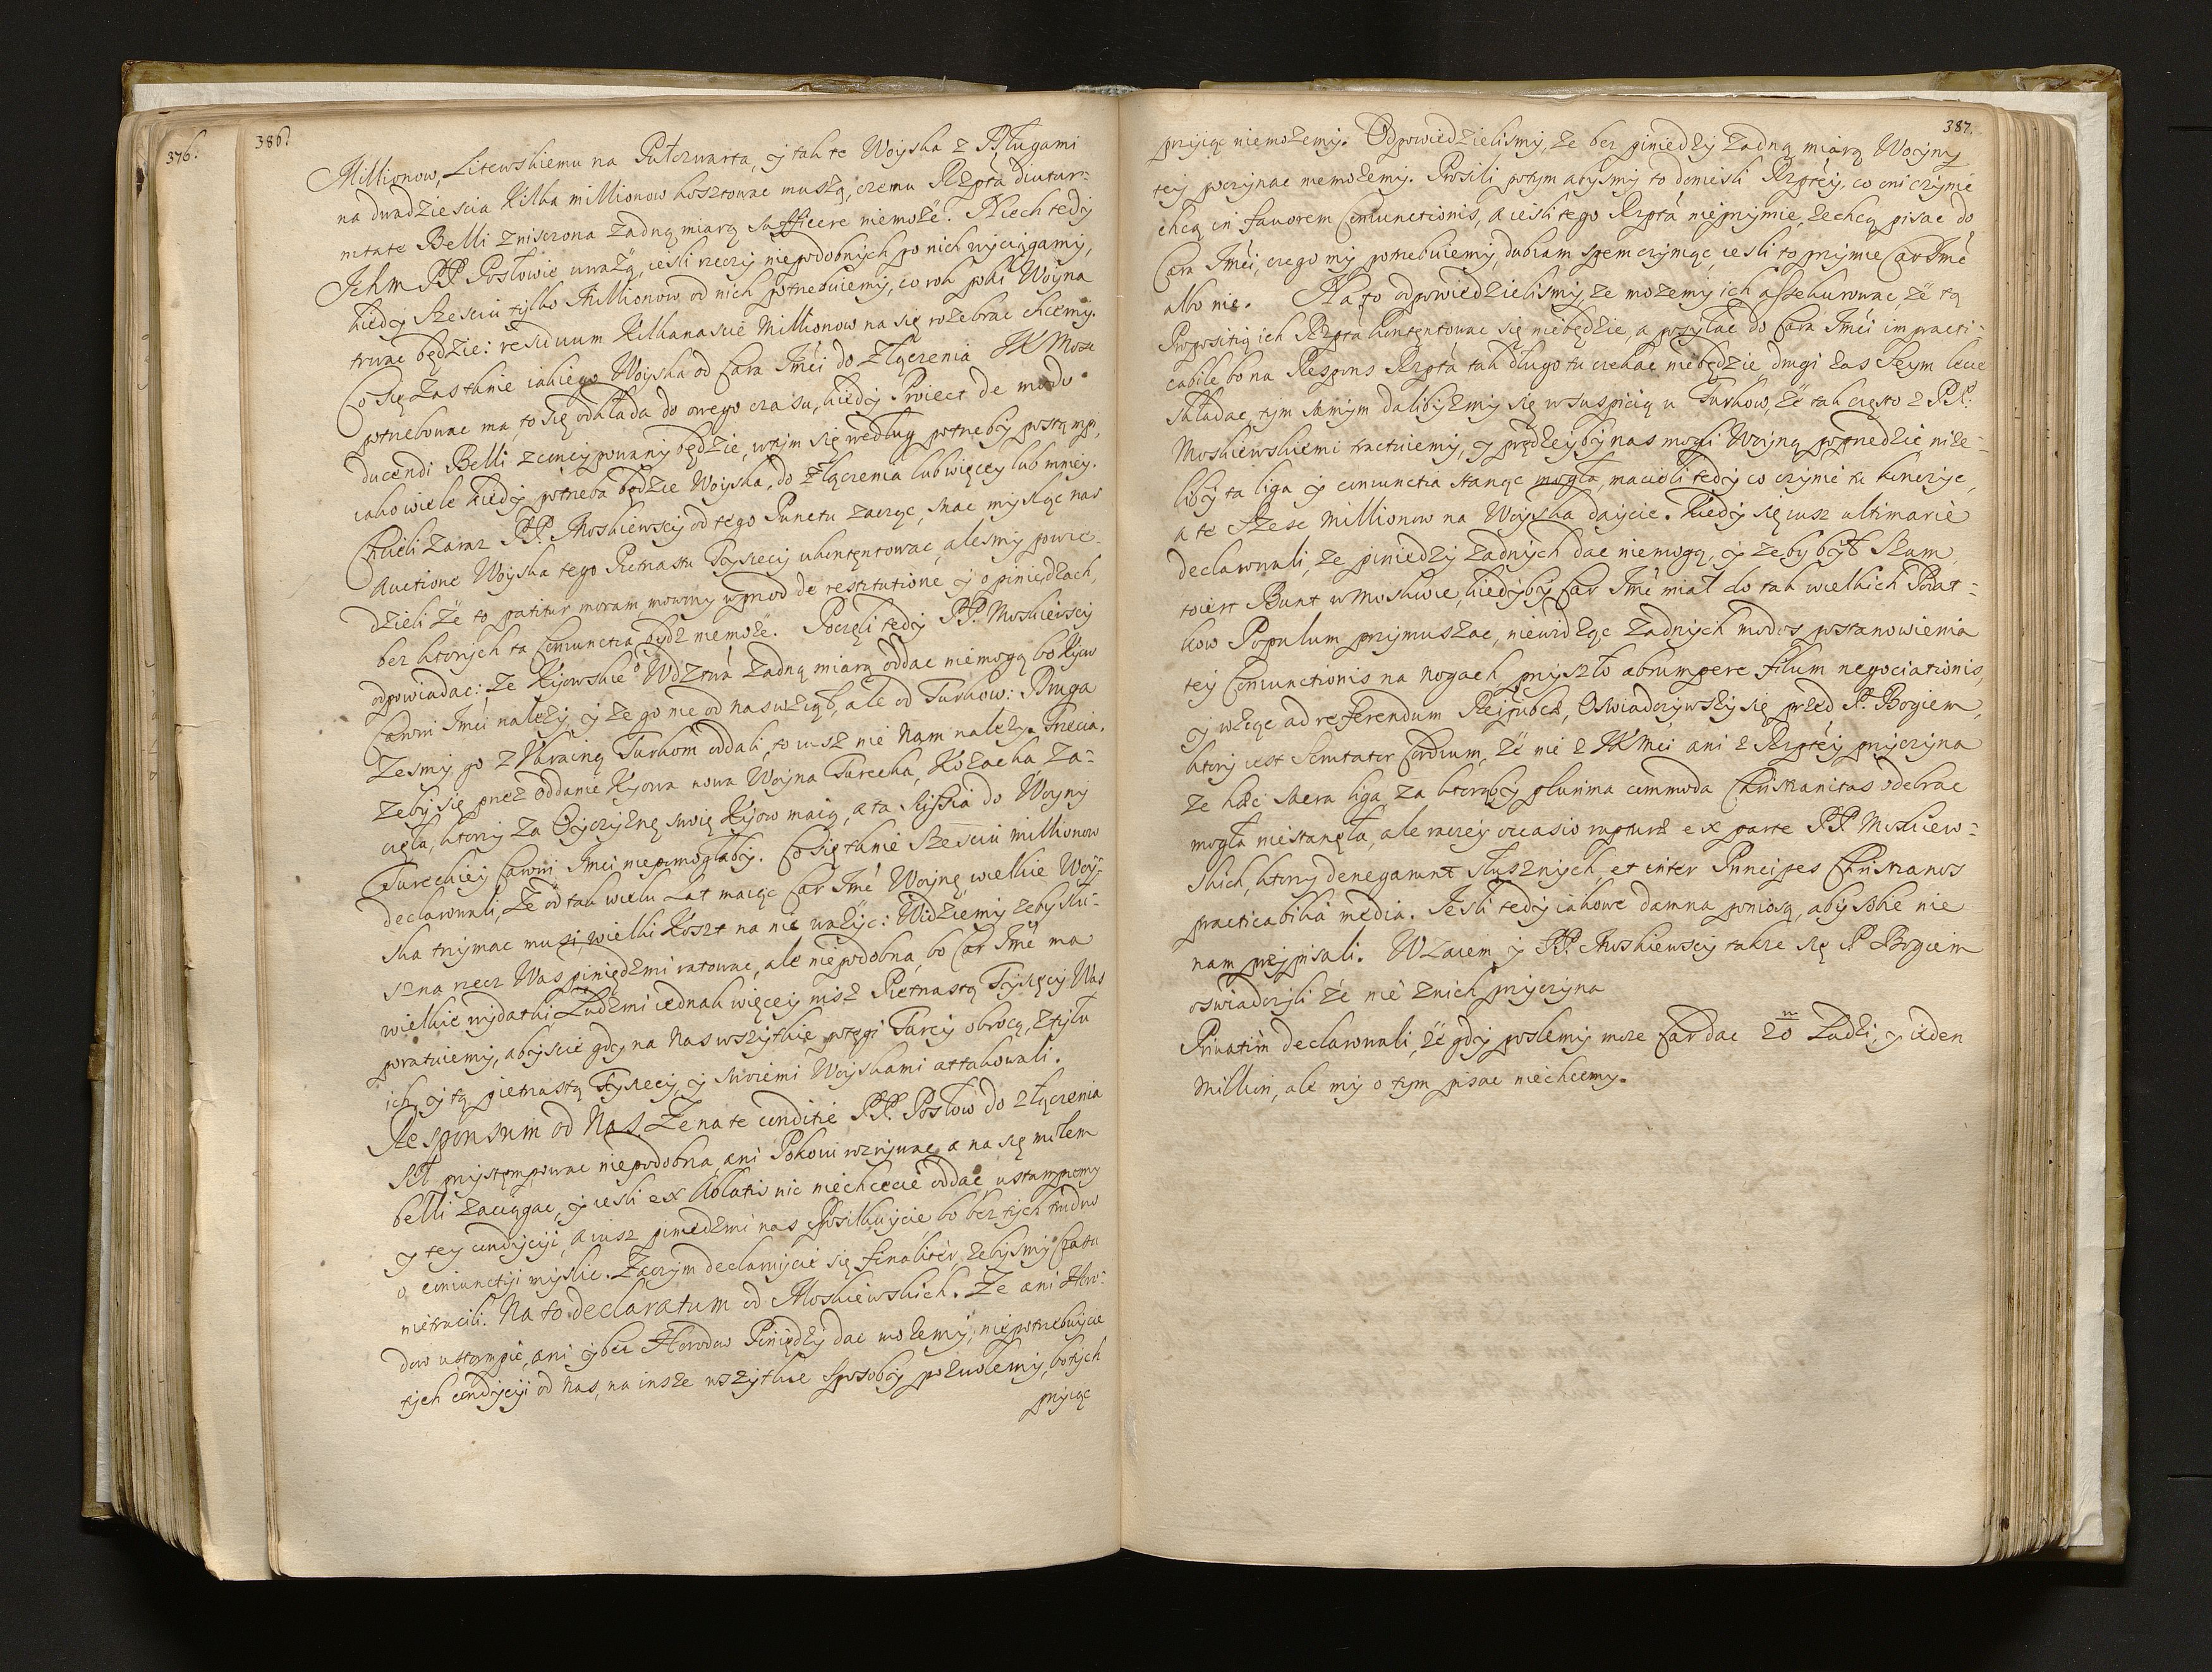 376.
386.
Millionow, Litewskiemu na Pułczwarta, y tak te Woyska z Długami
na dwadziescia kilka millionow kosztowac muszą, czemu Rzpta diutur=
nitate Belli zniszczona żadną miarą sufficere niemoże. Niech tedy
Ichm PP. Posłowie uważą, iesli rzeczy niepodobnych po nich wyciągamy,
kiedy szesciu tylko Millionow od nich potrzebuiemy, co rok poki Woyna
trwac będzie: residuum kilkanascie Millionow na się wżebrac chcemy.
Co się zas tknie iakiego Woyska od Cara Jmći do złączenia JKMosc
potrzebowac ma, to się odkłada do owego czasu, kiedy Proiect de modo
ducendi Belli zconcypowany będzie, w tym się według potrzeby postąmpi,
iako wiele kiedy potrzeba będzie Woyska, do złączenia lub więcey lub mniey.
Chcieli zaraz PP. Moskiewscy od tego Punctu zacząc, snac mysląc nas
Auctione Woyska tego Pietnastu Tysięcy ukontentowac, alesmy powie=
dzieli że to patitur moram, mowmy wprzod de restitutione y o piniędzach,
bez ktorych ta Coniunctia bydz niemoże. Poczęli tedy PP. Moskiewscy
odpowiadac: że Kijowskiego Wdztwa żadną miarą oddac niemogą bo Kijow
Carowi Jmći należy, y że go nie od nas wziął, ale od Turkow: Druga
Zesmy go z Ukrainą Turkom oddali, to iusz nie Nam należy. Trzecia.
zeby się przez oddanie Kijowa nowa Woyna Turecka, Kozacka za=
częła, ktorzy za Oyczyznę swoię Kijow maią, a ta Missia do Woyny
Tureckiey Carowi Jmći niepomogłaby. Co się tknie szesciu millionow
declarowali, że od tak wielu Lat maiąc Car Jmć Woynę, wielkie Woy=
ska trzymac musi, wielki koszt na nie ważyc: Widziemy żeby słu=
szna rzecz Was piniędzmi ratowac, ale niepodobna, bo Car Jmć ma
wielkie wydatki, Ludzmi iednak więcey nisz Pietnastą Tysięcy Was
poratuiemy, abyscie gdy na Nas wszytkie potęgi Turcy obrocą, z tyłu
ich y tą pietnastą Tysięcy y swoiemi Woyskami attakowali.
Responsum od Nas. Że na te conditie PP. Posłow do złączenia
Sił przystęmpowac niepodobna, ani Pokoiu wzrywac, a na się molem
belli zaciągac, y iesli ex Ablatis nic niechcecie oddac ustąmpiemy
y tey condycyi, a iusz piniedzmi nas Posilkuycie bo bez tych trudno
o coniunctyi myslic. Zaczym declaruycie się finaliter, żebysmy Czasu
nietracili. Na to declaratum od Moskiewskich. Że ani Hro=
dow ustąmpic, ani y bez Hrodow Piniędzy dac możemy, niepotrzebuycie
tych condycyi od Nas, na insze wszytkie sposoby pozwolemy, bo tych
przyiąc
387.
przyiąc niemożemy. Odpowiedzielismy, że bez piniedzy żadną miarą Woyny
tey poczynac niemożemy. Prosili potym abysmy to doniesli Rzptey, co oni czynic
chcą in favorem Coniunctionis, a iesli tego Rzpta nieprzymie, że chcą pisac do
Cara Jmći, czego my potrzebuiemy, dubiam spem czyniąc, iesli to przymie Car Jmć
albo nie. Na to odpowiedzielismy, że możemy ich assekurowac, że tą
Propositią ich Rzpta kontentowac się niebędzie, a posyłac do Cara Jmći impracti=
cabile, bo na Respons Rzpta tak długo tu czekac niebędzie, drugi zas Seym lecie
składac, tym samym dalibysmy się w suspicią u Turkow, że tak często z PP.
Moskiewskiemi tractuiemy, y prędzey by nas mogli Woyną poprzedzic niże=
liby ta liga y coniunctia stanąc mogła, macieli tedy co czynic tu konczyc,
a te Szesc Millionow na Woyska daycie. Kiedy się iusz ultimarie
declarowali, że piniedzy żadnych dac niemogą, y żeby był szum
toiest Bunt w Moskwie, kiedyby Car Jmć miał do tak wielkich Podat=
kow Populum przymuszac, niewidząc żadnych modos postanowienia
tey Coniunctionis na nogach, przyszło abrumpere filum negociationis,
y wziąc ad referendum Reipubcæ, Oswiadczywszy się przed P. Bogiem,
ktory iest Scrutator Cordium, że nie z JKMci ani z Rzptey przyczyna
że hæc sacra liga, za ktorąby plurima commoda Christianitas odebrac
mogła niestanęła, ale raczey occasio rupturæ ex parte PP. Moskiew=
skich, ktorzy denegarunt słusznych, et inter Principes Christianos
practicabilia media. Jesli tedy iakowe damna poniosą, aby sobie nie
nam przypisali. Wzaiem y PP. Moskiewscy także się P. Bogiem
oswiadczyli że nie znich przyczyna
Privatim declarowali, że gdy poslemy może Car dac 20 m Ludzi, y ieden
Million, ale my o tym pisac niechcemy.